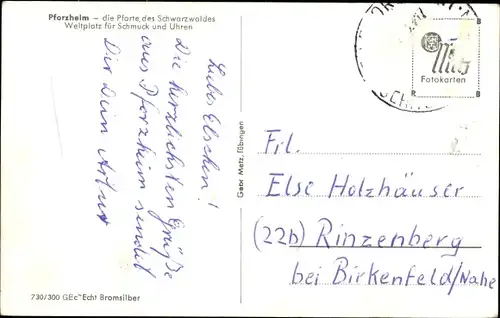 Pforzheim – die Pforte des Schwarzwaldes
Weltplatz für Schmuck und Uhren
Liebes Elschen!
Die herzlichsten Grüße
aus Pforzheim sendet
Dir Dein Artur
730/300 GEc Echt Bromsilber
Gebr. Metz, Tübingen
Fotokarten
Frl.
Else Holzhäuser
(22b) Rinzenberg
bei Birkenfeld/Nahe